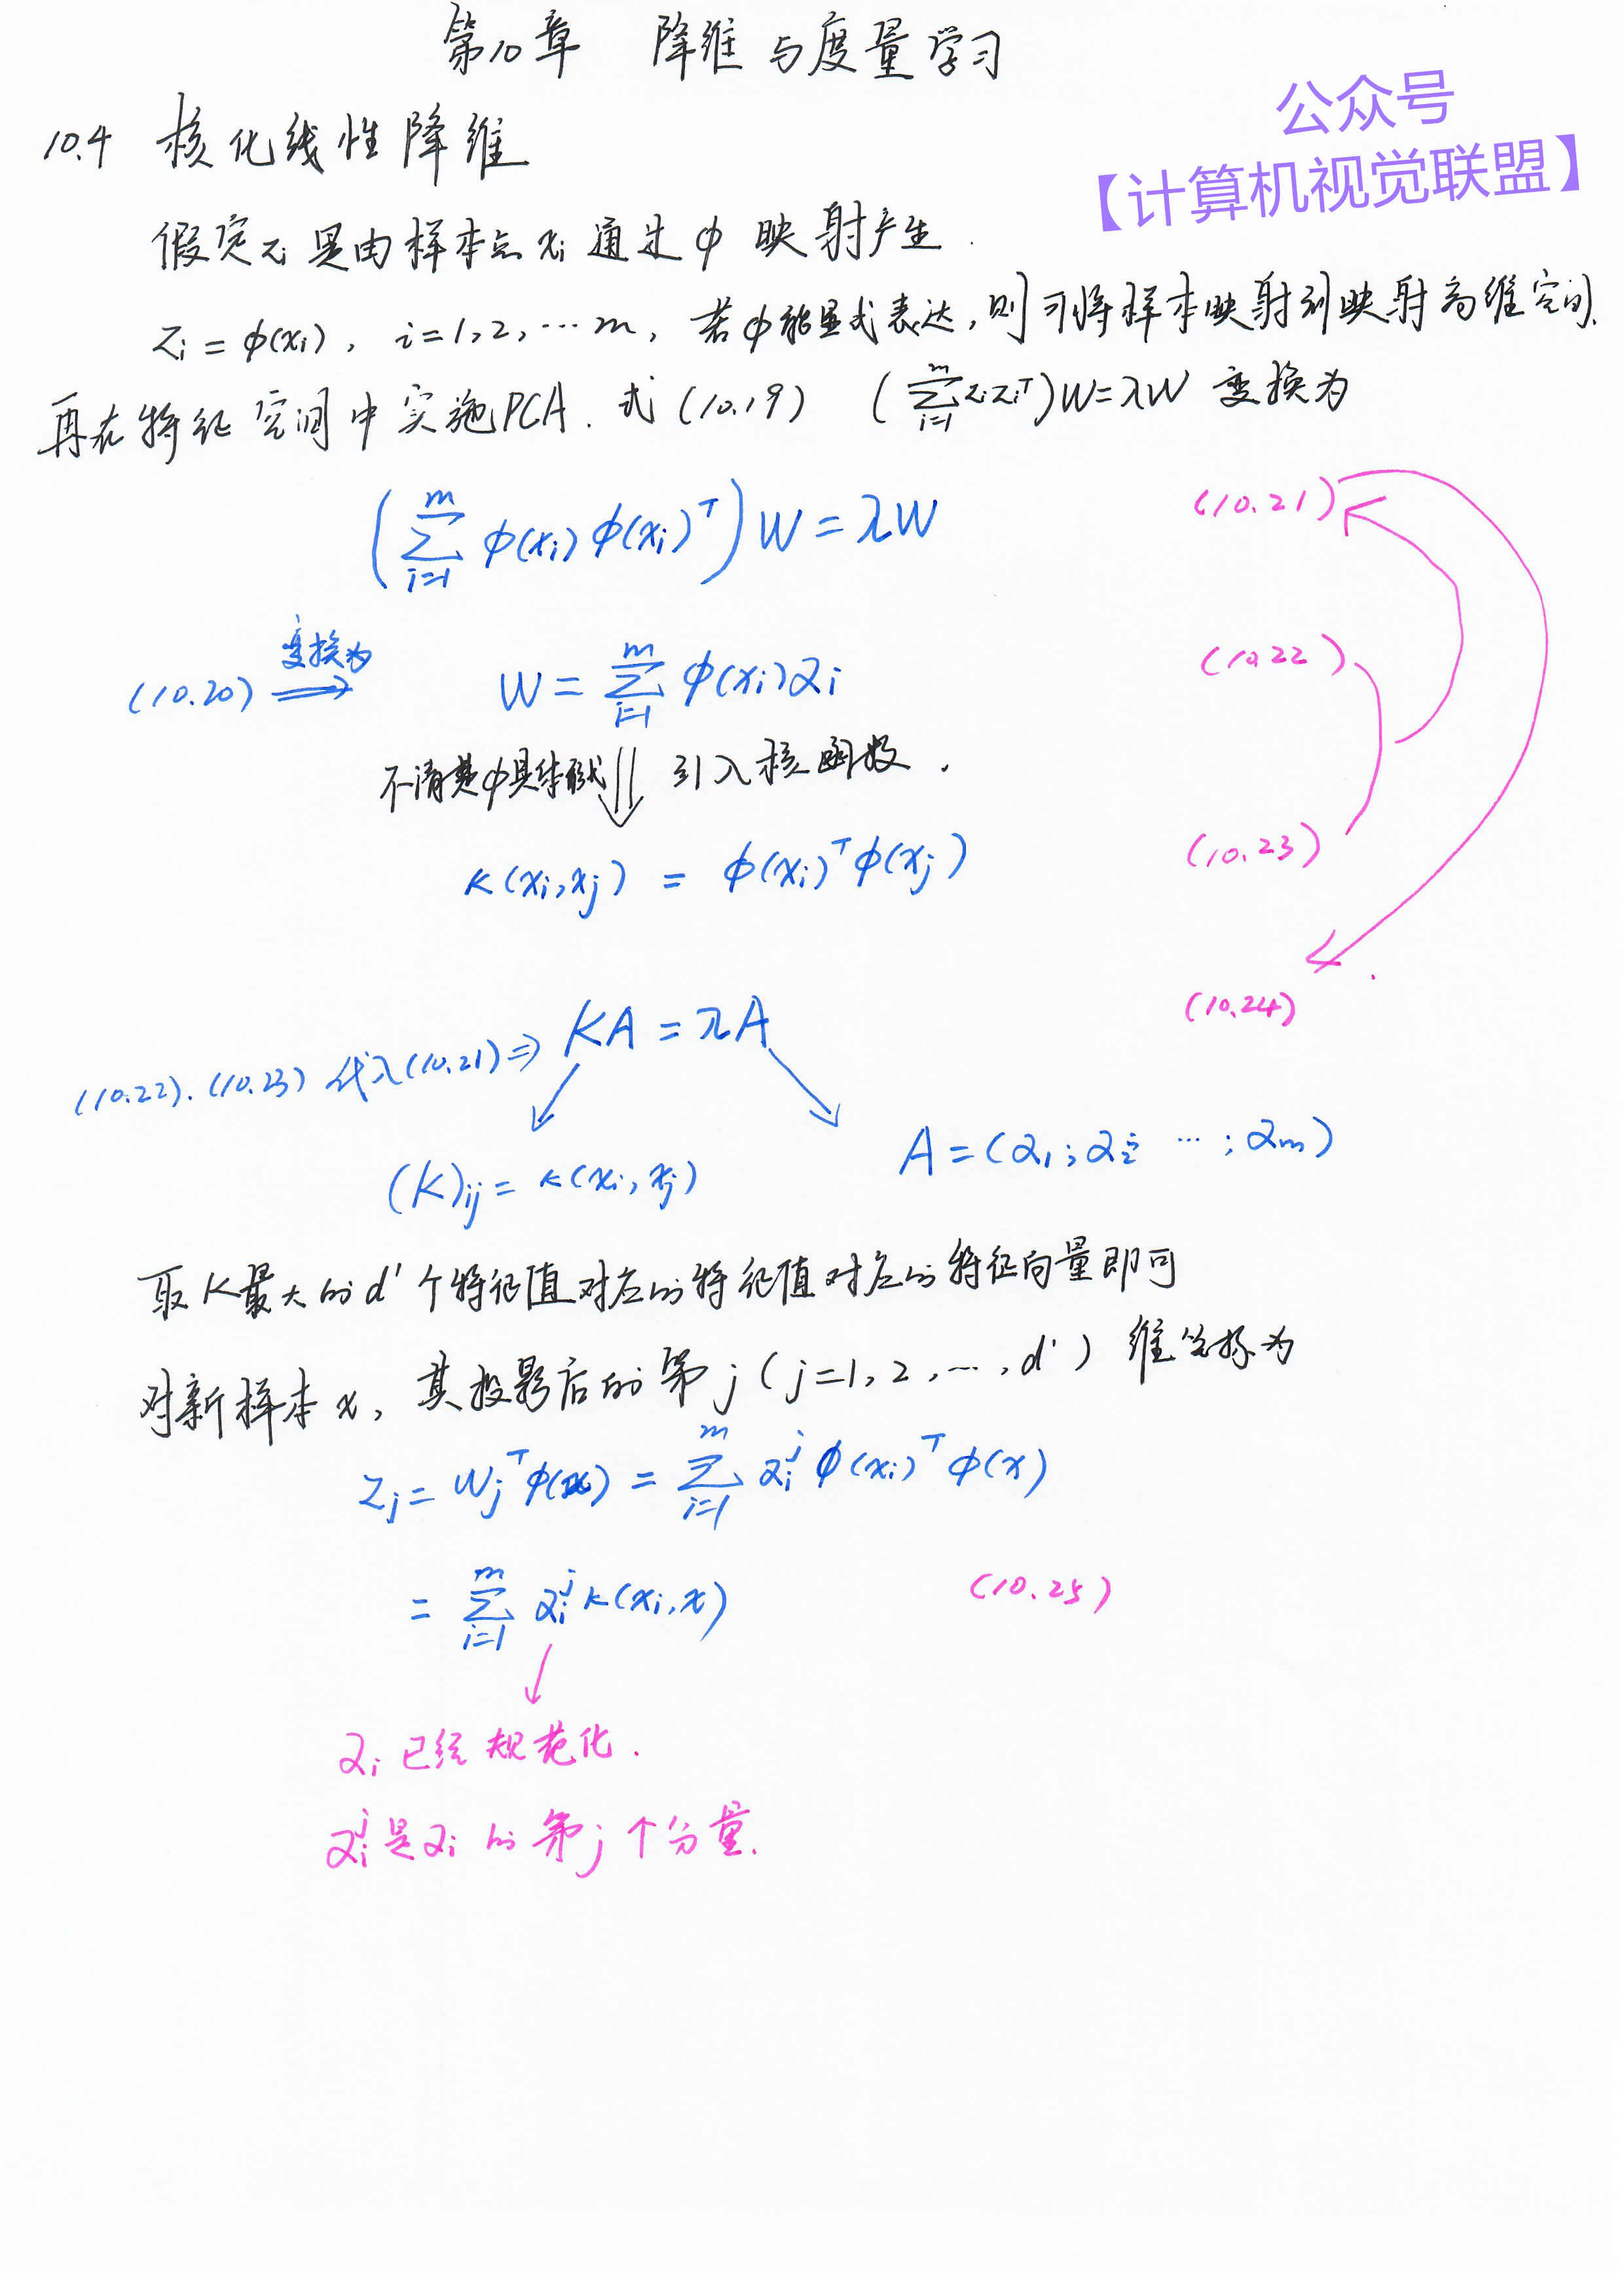 第10章 降维与度量学习
公众号
【计算机视觉联盟】
10.4 核化线性降维
假定zi是由样本点xi通过φ映射产生.
zi = φ(xi), i=1,2,…m, 若φ能显式表达,则可将样本映射到映射高维空间,
再在特征空间中实施PCA. 式(10.19) (∑_{i=1}^{m} zi zi^T)W=λW 变换为
(∑_{i=1}^{m} φ(xi) φ(xi)^T) W = λW (10.21)
(10.20) 变换为 ⟹ W = ∑_{i=1}^{m} φ(xi)αi (10.22)
不清楚φ具体形式 ⇓ 引入核函数.
κ(xi,xj) = φ(xi)^T φ(xj) (10.23)
(10.24)
(10.22).(10.23)代入(10.21)⇒ KA = λA
(K)ij = κ(xi,xj) A=(α1;α2; …;αm)
取K最大的d'个特征值对应的特征值对应的特征向量即可
对新样本x, 其投影后的第j(j=1,2,…,d')维坐标为
zj = wj^T φ(x) = ∑_{i=1}^{m} αi^j φ(xi)^T φ(x)
= ∑_{i=1}^{m} αi^j κ(xi,x) (10.25)
αi 已经规范化.
αi^j是αi的第j个分量.